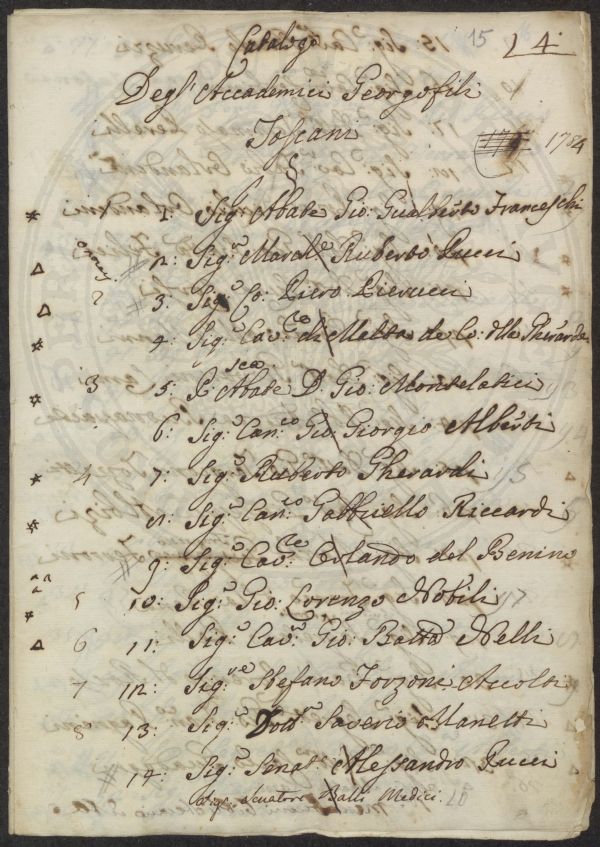 Catalogo
15
14
Degl' Accademici Georgofili
Toscani
1784
1: Sig.r Abate Gio: Gualberto Franceschi
2: Sig.r Maral.e Ruberto Pucci
3: Sig. Co: Piero Pierucci
4: Sig.r Cav.re di Malta de Co: della Gherardesca
3 5: P. Abate D. Gio: Montelatici
6: Sig.r Can.co Gio: Giorgio Alberti
4 7: Sig.r Ruberto Gherardi
8: Sig.r Can.co Gabbriello Riccardi
9: Sig.r Cav.re Orlando del Benino
5 10: Sig.r Gio: Lorenzo Nobili
6 11: Sig.r Cav.r Gio: Batta Nelli
7 12: Sig.re Stefano Forzoni Accolti
8 13: Sig.r Dott. Saverio Manetti
14: Sig.r Senat.e Alessandro Pucci
Sig.r Senatore Balì Medici